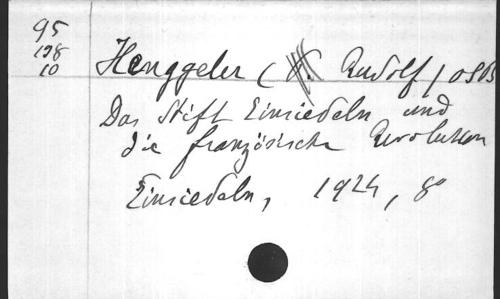 95
198
10
Henggeler ( Rudolf ) OSB
Das Stift Einsiedeln und
die französische Revolution
Einsiedeln, 1924, 8°